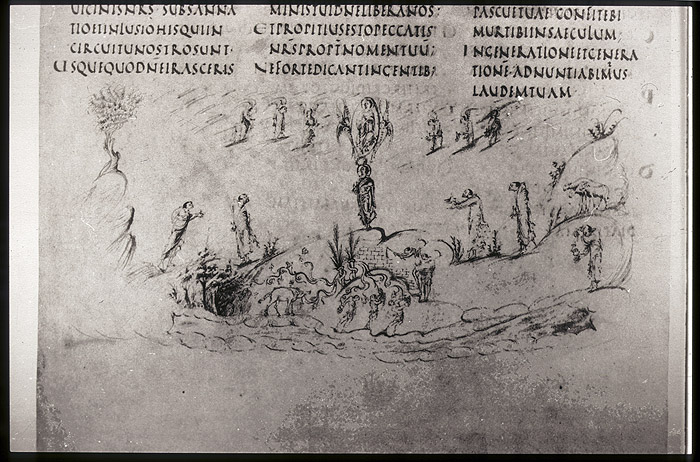 UICINISNRS SUBSANNA
TIOETINLUSIOHISQUIIN
CIRCUITUNOSTROSUNT·
USQUEQUODNEIRASCERIS
MINISTUIDNELIBERANOS:
ETPROPITIUSESTOPECCATIS
NRSPROPTNOMENTUU;
NEFORTEDICANTINGENTIB;
PASCUETUAE·CONFITEBI
MURTIBIINSAECULUM;
INGENERATIONEETGENERA
TIONE·ADNUNTIABIMUS
LAUDEMTUAM·